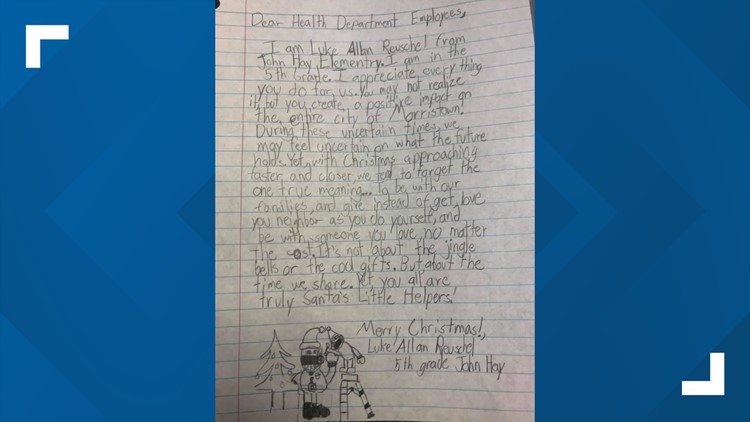 Dear Health Department Employees,
I am Luke Allan Reuschel from
John Hay Elementry. I am in the
5th Grade. I appreciate every thing
you do for us. You may not realize
it, but you create a positive impact on
the entire city of Morristown!
During these uncertain times, we
may feel uncertain on what the future
holds. Yet, with Christmas approaching
faster and closer, we tend to forget the
one true meaning... To be with our
families, and give instead of get, love
you neighbor as you do yourself, and
be with someone you love no matter
the cost. It's not about the jingle
bells or the cool gifts. But about the
time we share. Yet you all are
truly Santa's Little Helpers!
Merry Christmas!,
Luke Allan Reuschel
5th grade John Hay